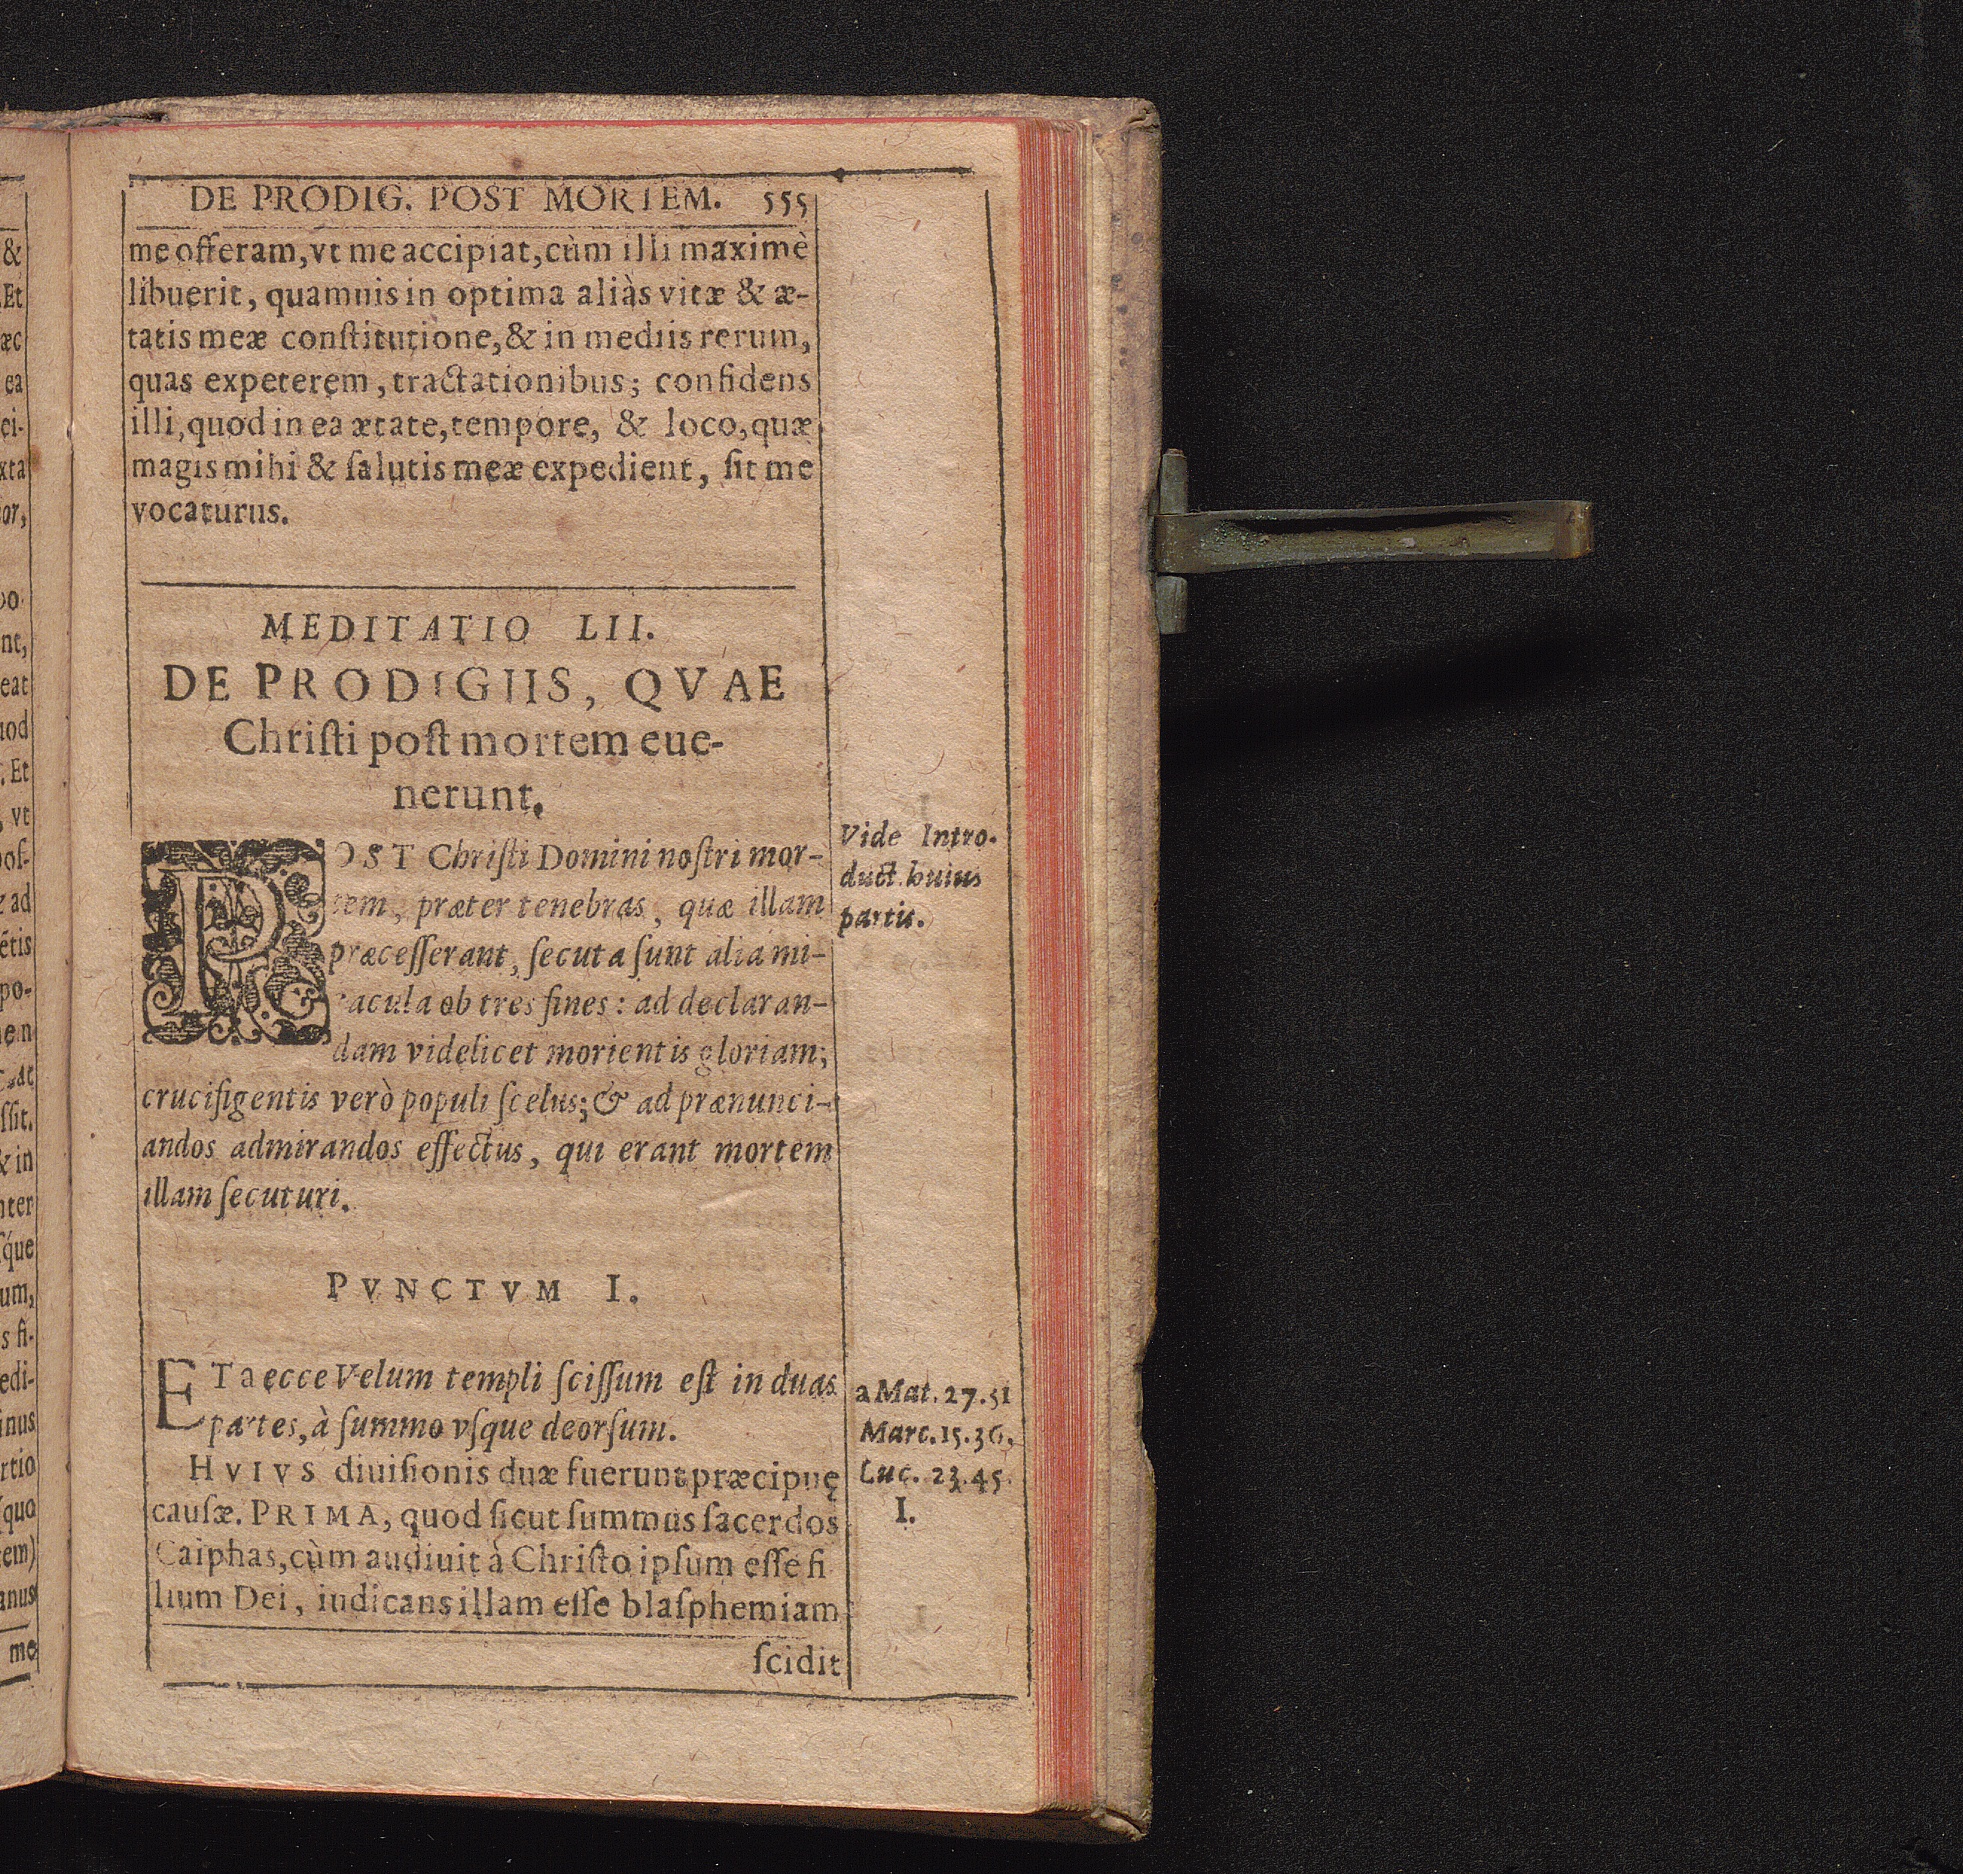 DE PRODIG. POST MORTEM. 555
me offeram, vt me accipiat, cùm illi maximè
libuerit, quamuis in optima aliàs vitæ & æ-
tatis meæ conſtitutione, & in mediis rerum,
quas expeterem, tractationibus; confidens
illi, quod in ea ætate, tempore, & loco, quæ
magis mihi & ſalutis meæ expedient, ſit me
vocaturus.
MEDITATIO LII.
DE PRODIGIIS, QVAE
Chriſti poſt mortem eue-
nerunt.
POST Chriſti Domini noſtri mor-
tem, præter tenebras, quæ illam
præceſſerant, ſecuta ſunt alia mi-
racula ob tres fines: ad declaran-
dam videlicet morientis gloriam;
crucifigentis verò populi ſcelus; & ad prænunci-
andos admirandos effectus, qui erant mortem
illam ſecuturi.
Vide Intro-
duct. huius
partis.
PVNCTVM I.
ET a ecce Velum templi ſciſſum eſt in duas
partes, à ſummo vſque deorſum.
HVIVS diuiſionis duæ fuerunt præcipuę
cauſæ. PRIMA, quod ſicut ſummus ſacerdos
Caiphas, cùm audiuit á Chriſto ipſum eſſe fi
lium Dei, iudicans illam eſſe blaſphemiam
ſcidit
a Mat. 27. 51
Marc. 15. 36.
Luc. 23. 45.
I.
&
Et
æc
ea
ei-
xta
or,
nt,
eat
uod
. Et
, vt
poſ-
ad
étis
po-
ſſit.
& in
nter
ſque
um,
s fi-
edi-
inus
rtio
quo
tem)
anus
me